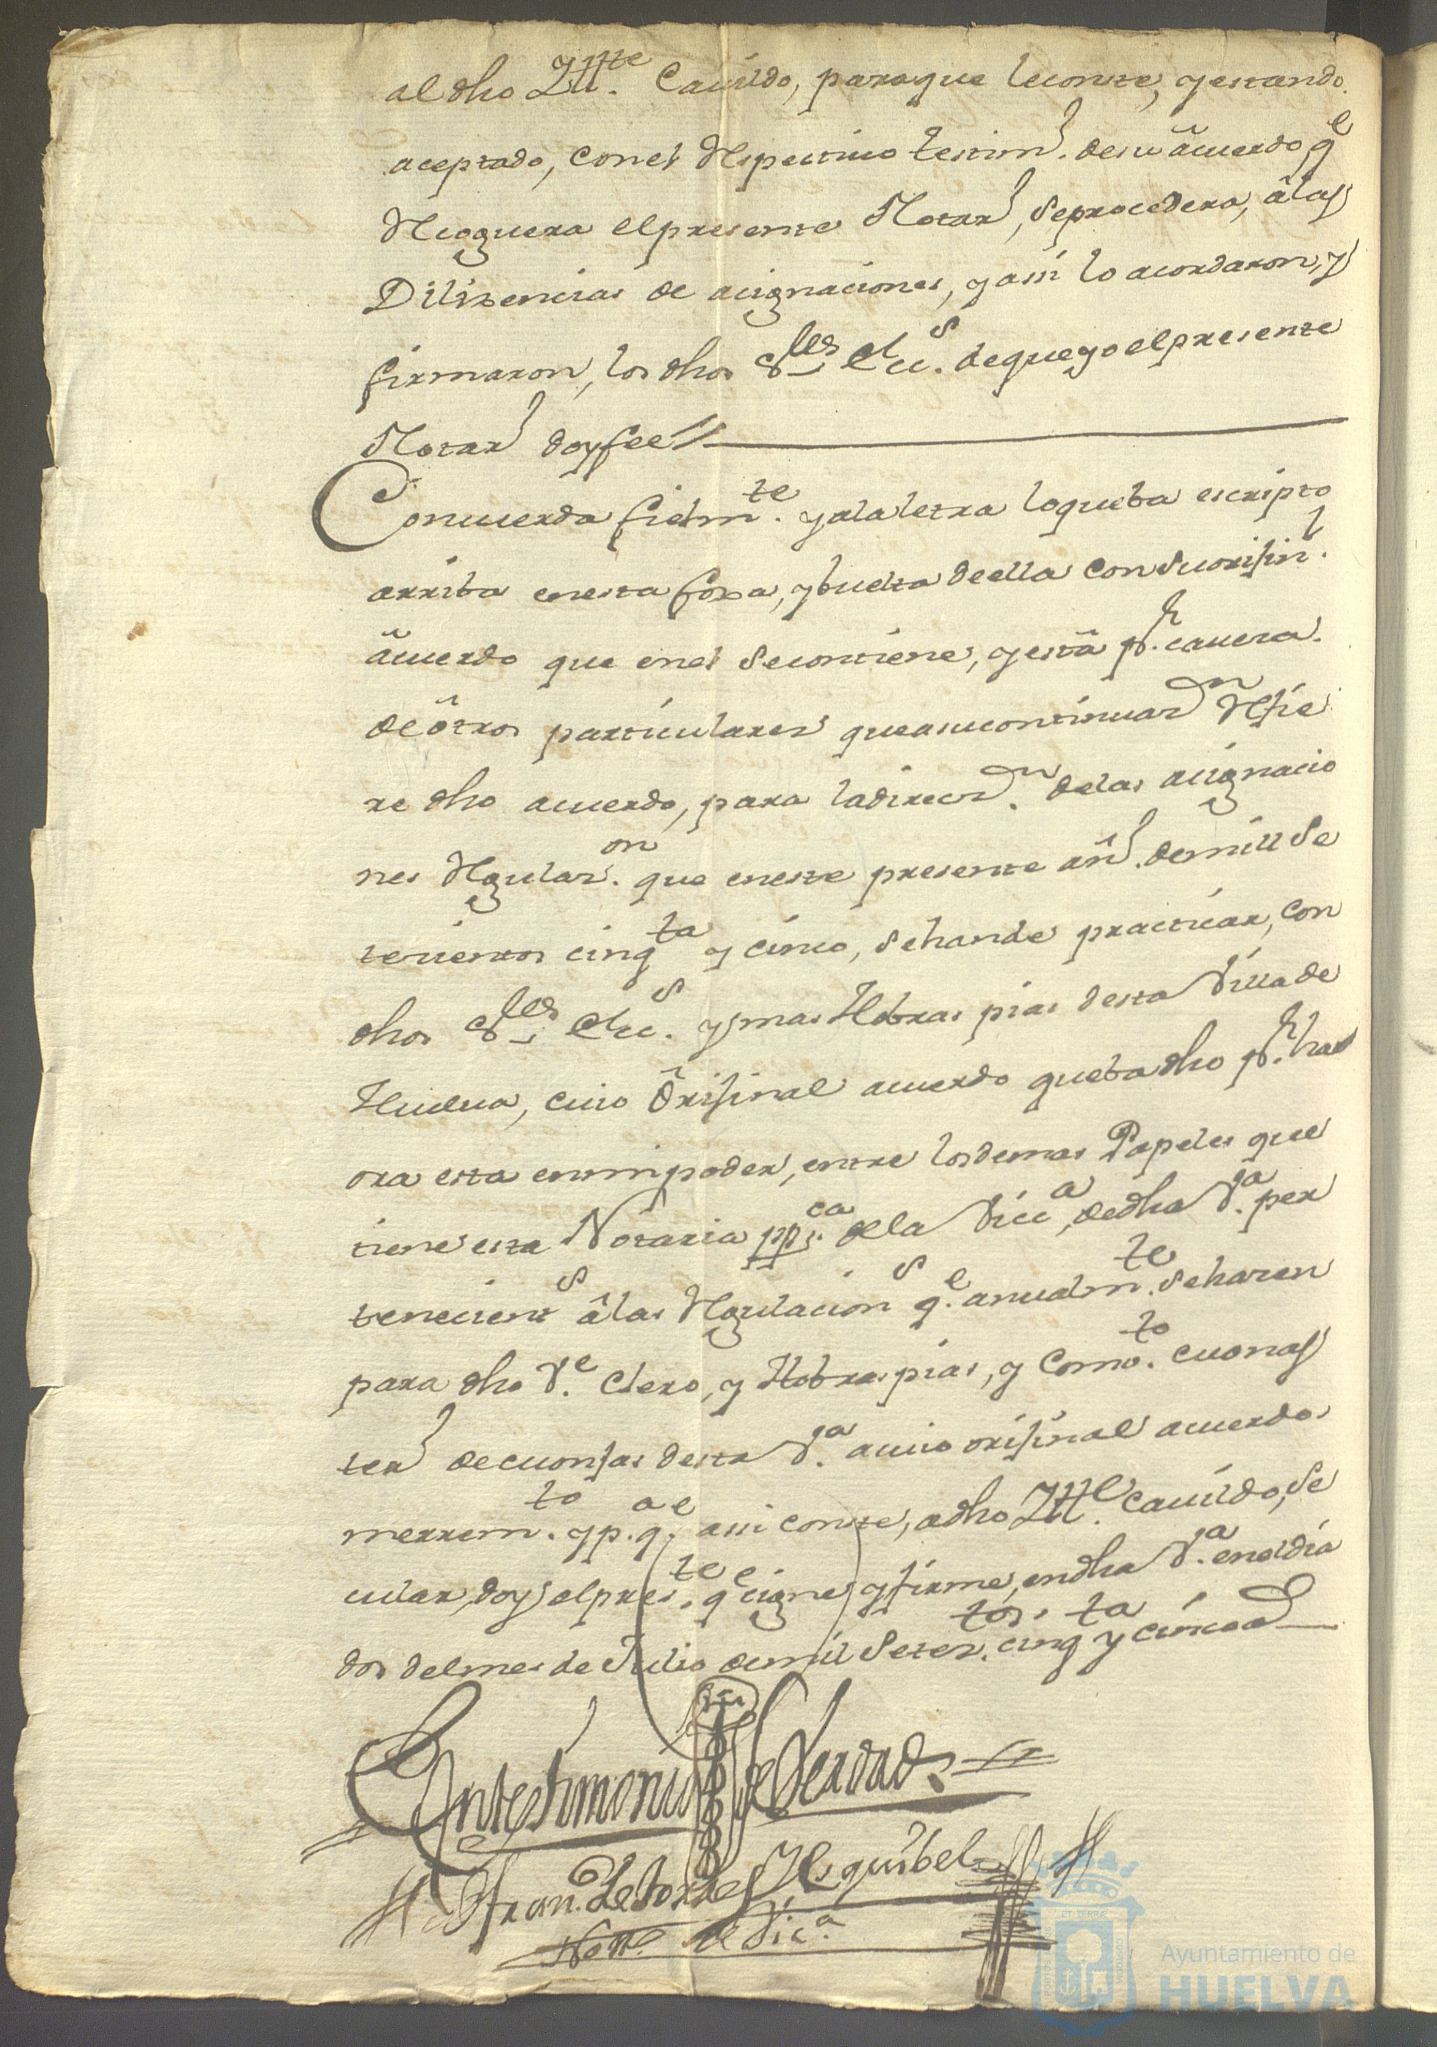 al dho Ylltte. Cavildo, paraque leconste, y estando
aceptado, conel Respectivo testim.º desu acuerdo q.e
Recoguera elpresente Notar.º, seprocedera, â las
Diligencias de acignaciones, y assi lo acordaron, y
firmaron, los dhos S.res Ecc.s deque yo elpresente
Notar.º doy fee //
Concuerda fielm.te yalaletra loqueba escripto
arriba enesta foxa, y buelta deella con su orijin.l
âcuerdo que enel secontiene, y está p.r cavera
de ôtros particulares queasucontinuaz.on Refie
re dho acuerdo, para ladirecz.on delas acignacio
nes Regulaz.on que eneste presente añ.º demill se
tecientos cinq.ta y cinco, sehande practicar, con
dhos S.res Ecc.s y mas Hobras pias desta Villa de
Huelva, cuio Ôrijinal acuerdo queba dho p.r haz
ora esta enmipoder, entre losdemas Papeles que
tiene esta Notaria pp.ca dela Vicc.a dedha V.a per
tenecient.s â las Regulacion.s q.e anualm.te se hazen
para dho V.e Clero, y Hobras pias, y Como.to cuonas
ter.º decuonsas desta V.a acuio orijinal acuerdo
merrem.to y p.a q.e assi conste, a dho Yltt.e cavildo, se
cular, doy elpres.te q.e cigne, y firme, endha V.a eneldia
dos delmes de Julio demil setez.tos cinq.ta y cinco a.s
Entestimonio de Verdad
Fran.co de Torres Y Esquibel
Not.º de Vic.a
Ayuntamiento de
HUELVA